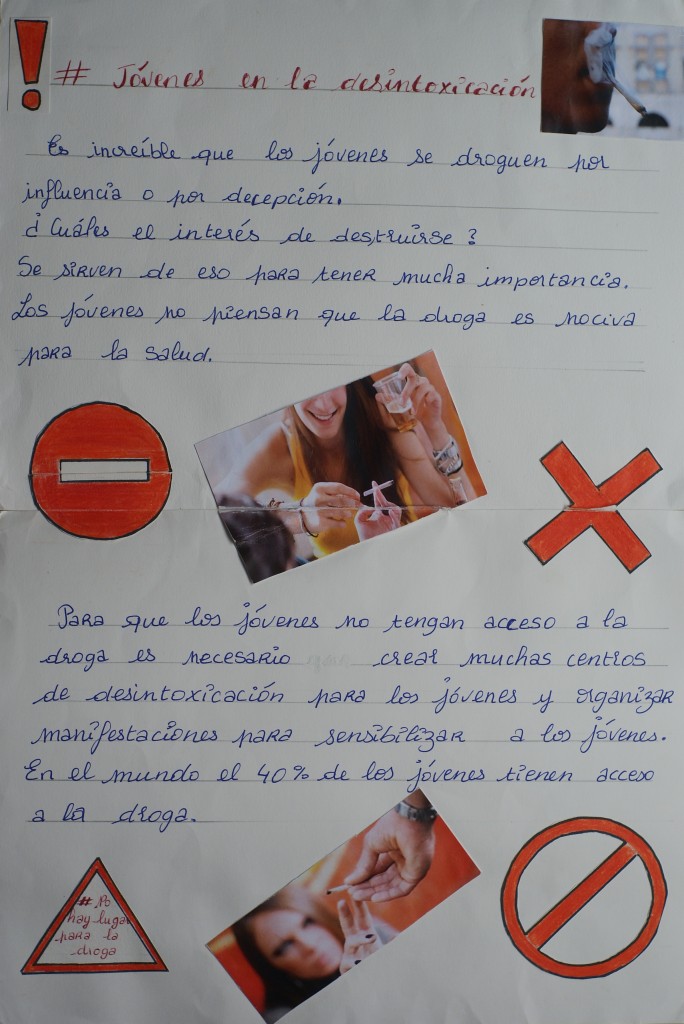 # Jóvenes en la desintoxicación
Es increíble que los jóvenes se droguen por
influencia o por decepción.
¿Cuáles el interés de destruirse?
Se sirven de eso para tener mucha importancia.
Los jóvenes no piensan que la droga es nociva
para la salud.
Para que los jóvenes no tengan acceso a la
droga es necesario creat muchas centros
de desintoxicación para los jóvenes y organizar
manifestaciones para sensibilizar a los jóvenes.
En el mundo el 40% de los jóvenes tienen acceso
a la droga.
# No
hay lugar
para la
droga